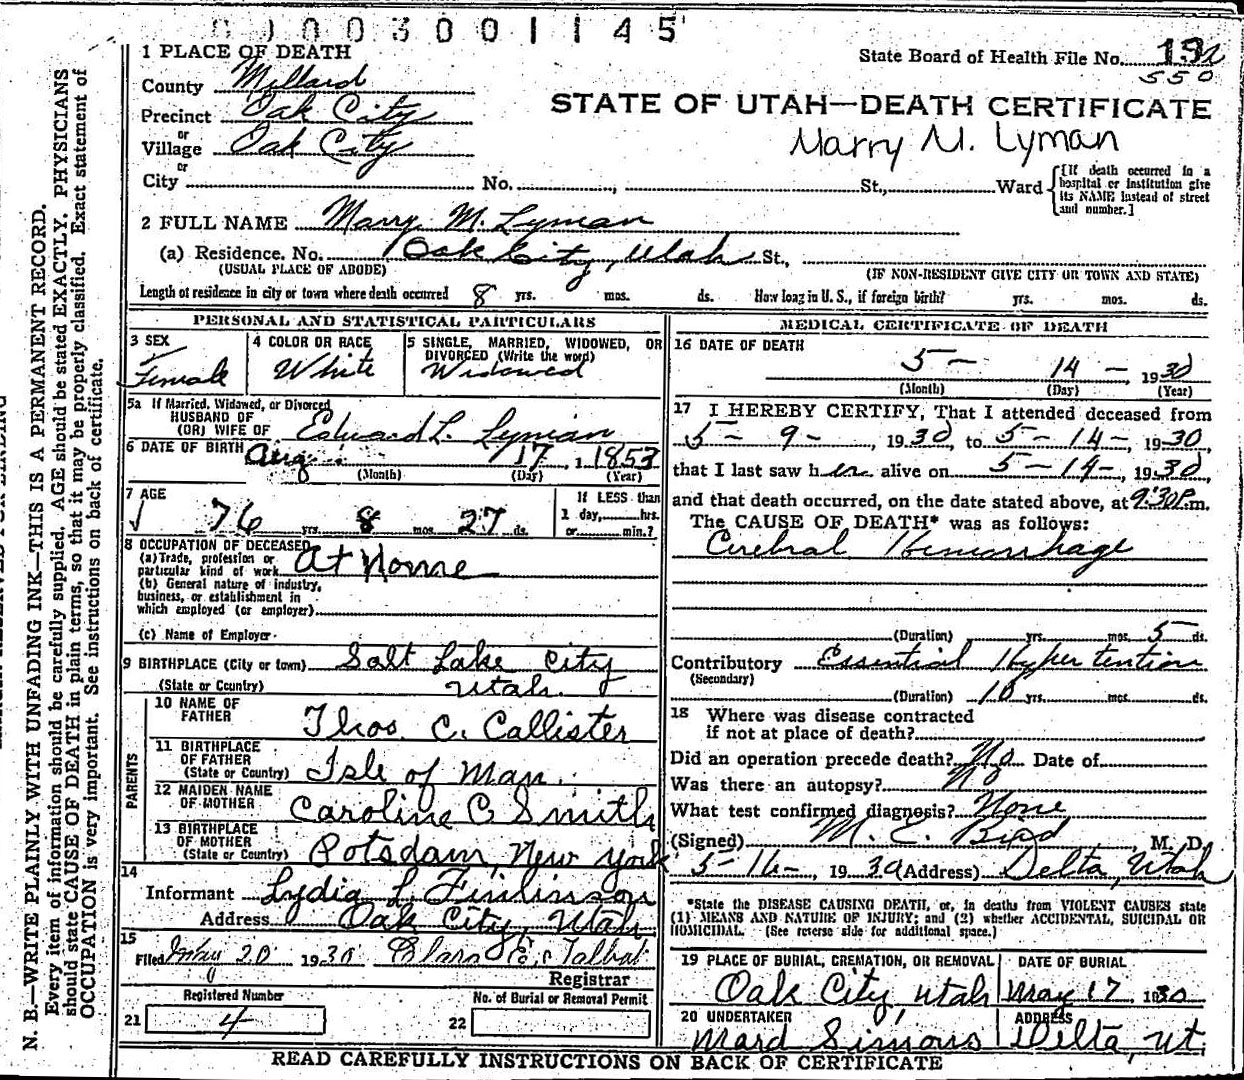 0100300 1145
1 PLACE OF DEATH
State Board of Health File No.
550
County Millard
STATE OF UTAH—DEATH CERTIFICATE
Precinct Oak City
or
Village Oak City
Marry M. Lyman
or
City No. , St., Ward
[If death occurred in a hospital or institution give its NAME instead of street and number.]
2 FULL NAME Marry M. Lyman
(a) Residence. No. Oak City, Utah St.,
(USUAL PLACE OF ABODE) (IF NON-RESIDENT GIVE CITY OR TOWN AND STATE)
Length of residence in city or town where death occurred 8 yrs. mos. ds. How long in U. S., if foreign birth? yrs. mos. ds.
PERSONAL AND STATISTICAL PARTICULARS
3 SEX
Female
4 COLOR OR RACE
White
5 SINGLE, MARRIED, WIDOWED, OR
DIVORCED (Write the word)
Widowed
5a If Married, Widowed, or Divorced
HUSBAND OF
(OR) WIFE OF Edward L. Lyman
6 DATE OF BIRTH Aug. 17, 1853
(Month) (Day) (Year)
7 AGE
76 yrs. 8 mos. 27 ds.
If LESS than
1 day, hrs.
or min.?
8 OCCUPATION OF DECEASED
(a) Trade, profession or
particular kind of work At Home
(b) General nature of industry,
business, or establishment in
which employed (or employer)
(c) Name of Employer
9 BIRTHPLACE (City or town) Salt Lake City
(State or Country) Utah.
PARENTS
10 NAME OF
FATHER Thos. C. Callister
11 BIRTHPLACE
OF FATHER
(State or Country) Isle of Man.
12 MAIDEN NAME
OF MOTHER Caroline C Smith
13 BIRTHPLACE
OF MOTHER
(State or Country) Potsdam, New York
14
Informant Lydia L. Finlinson
Address Oak City, Utah
15
Filed May 20 1930 Clara E. Talbot
Registrar
Registered Number
21 4
No. of Burial or Removal Permit
22
MEDICAL CERTIFICATE OF DEATH
16 DATE OF DEATH
5 - 14 - , 1930
(Month) (Day) (Year)
17 I HEREBY CERTIFY, That I attended deceased from
5 - 9 - , 1930, to 5 - 14 -, 1930,
that I last saw her alive on 5 - 14 -, 1930,
and that death occurred, on the date stated above, at 9:30P.m.
The CAUSE OF DEATH* was as follows:
Cerebral Hemorrhage
(Duration) yrs. mos. 5 ds.
Contributory Essential Hypertention
(Secondary)
(Duration) 10 yrs. mos. ds.
18 Where was disease contracted
if not at place of death?
Did an operation precede death? No Date of
Was there an autopsy? No
What test confirmed diagnosis? None
(Signed) M. E. Bird, M. D.
5 - 16 -, 1930 (Address) Delta, Utah
*State the DISEASE CAUSING DEATH, or, in deaths from VIOLENT CAUSES state
(1) MEANS AND NATURE OF INJURY; and (2) whether ACCIDENTAL, SUICIDAL OR
HOMICIDAL. (See reverse side for additional space.)
19 PLACE OF BURIAL, CREMATION, OR REMOVAL
Oak City, Utah
DATE OF BURIAL
May 17 1930
20 UNDERTAKER
Mard Simons
ADDRESS
Delta, Ut.
READ CAREFULLY INSTRUCTIONS ON BACK OF CERTIFICATE
N. B.—WRITE PLAINLY WITH UNFADING INK—THIS IS A PERMANENT RECORD.
Every item of information should be carefully supplied. AGE should be stated EXACTLY. PHYSICIANS
should state CAUSE OF DEATH in plain terms, so that it may be properly classified. Exact statement of
OCCUPATION is very important. See instructions on back of certificate.